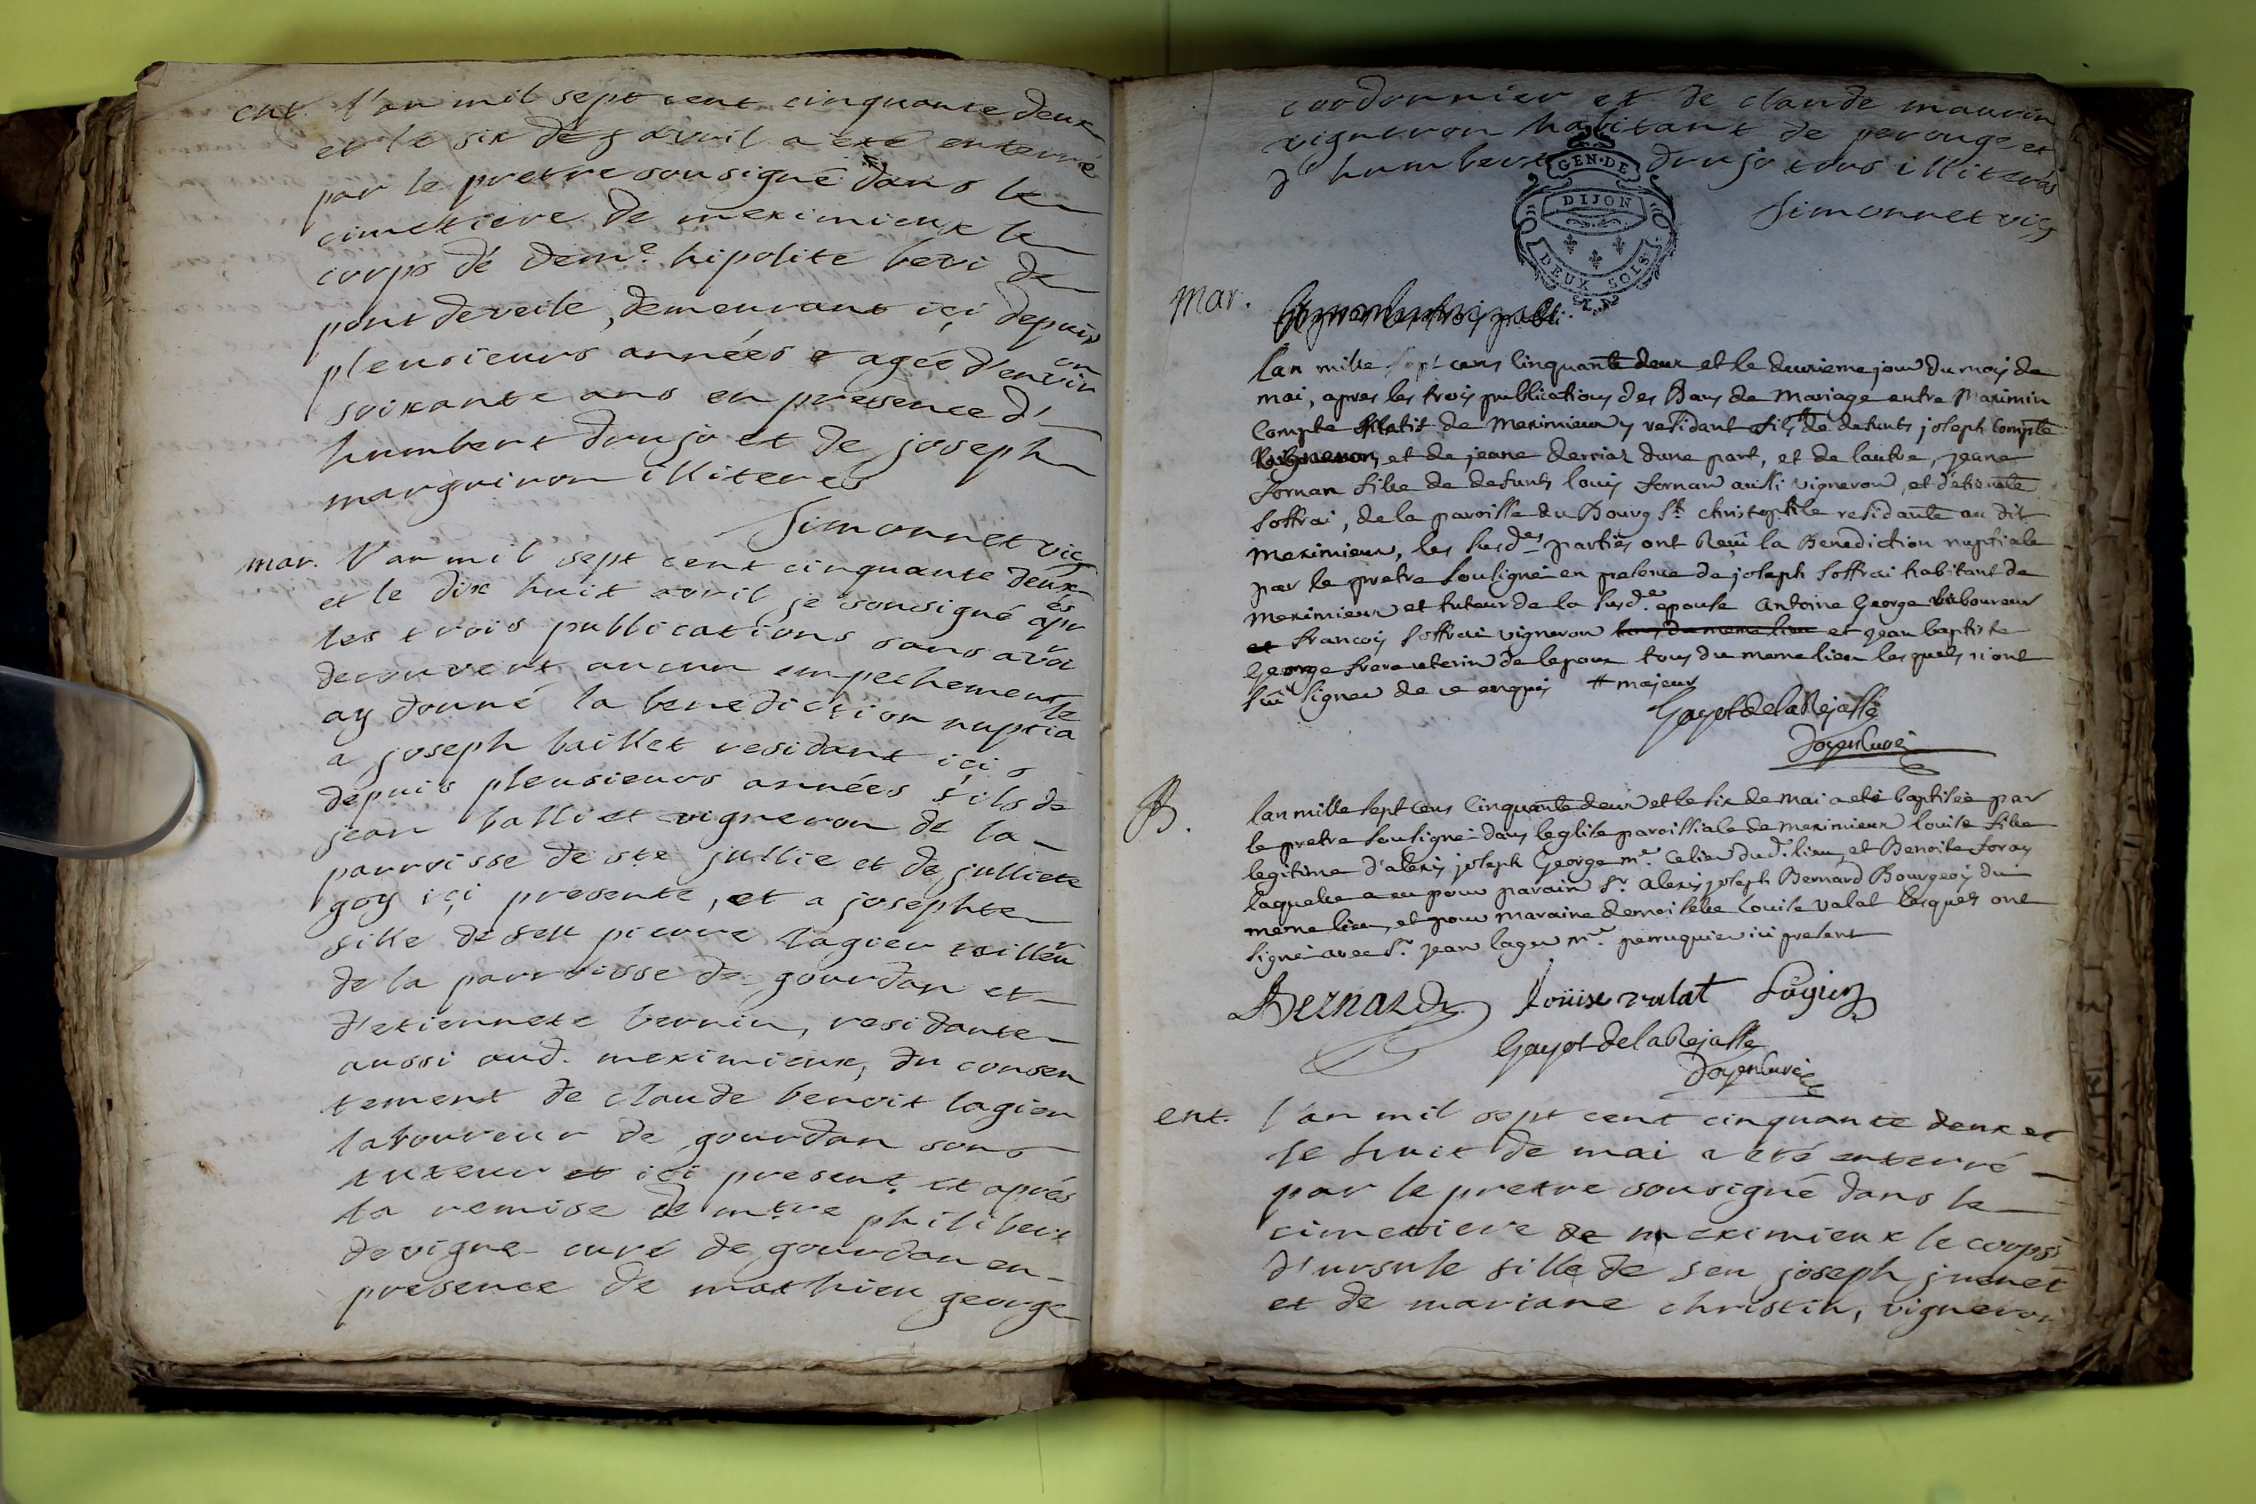 ent. l'an mil sept cent cinquante deux
et le six de avril a eté enterré
par le pretre sousigné dans le
cimetiere de meximieux le
corps dé demle hipolite beri de
pont deveile, demeurant içi depuis
pleusieurs années agée d'environ
soixante ans en presence d'
humbert drujo et de joseph
marguiron illiteres
Simonnet vic
mar. l'an mil sept cent cinquante deux
et le dix huit avril je sousigné aprés
les trois publications sans avoir
decouvert aucun empechement
ay donné la benediction nuptiale
a joseph baillet residant içi
depuis pleusieurs années fils de
jean balliet vigneron de la
parroisse de ste jullie et de julliete
goy içi presente, et a josephte
fille de feu pierre lagier tailleur
de la parroisse de gourdan et
d'etiennete bernin, residante
aussi aud. meximieux, du consen
tement de claude benoit lagier
laboureur de gourdan sons
tuteur et içi present et aprés
la remise de mtre philibert
devigne curé de gourdan en
presence de mathieu george
cordonnier et de claude maurin
vigneron habitant de perouge et
d' humbert drujo tous illiterés
Simonnet vic
GEN. DE
DIJON
DEUX SOLS
mar.
Lan mille sept cens cinquante deux et le deuxieme jour du mois de
mai, apres les trois publications des Bans de Mariage entre Maximin
Compte de Meximieux y residant fils # de defunts joseph Compte
vigneron, et de jeane derriaz dune part, et de lautre, jeane
fornan fille de defunts louis fornan aussi vigneron, et d'etienete
soffrai, de la paroisse du Bourg St. christophle residante au dit
meximieux, les susdes parties ont Reçû la Benediction nuptiale
par le pretre sousigné en presence de joseph soffrai habitant de
meximieux et tuteur de la susde. epouse antoine George laboureur
et francois soffrai vigneron tous du meme lieu et jean baptiste
George frere uterin de lepoux tous du meme lieu lesquels n'ont
sçû signer de ce enquis # majeur
Gayot de la Rejasse
doyen Curé
B. lan mille sept cens Cinquante deux et le six de mai a eté baptisée par
le pretre sousigné dans leglise paroissiale de meximieux louise fille
legitime d'alexis joseph George me. celier du d. lieu et Benoite foray
laquelle a eu pour parain Sr. alexis joseph Bernard Bourgeois du
meme lieu, et pour maraine demoiselle louise valat lesquels ont
signé avec Sr. jean lagier me. perruquier ici present
Bernard Loüise valat Lagier
Gayot de la Rejasse
doyen Curé
ent. l'an mil sept cent cinquante deux et
le huit de mai a eté enterré
par le pretre sousigné dans le
cimetiere de meximieux le corps
d'ursule fille de feu joseph juenet
et de mariane christin, vigneron